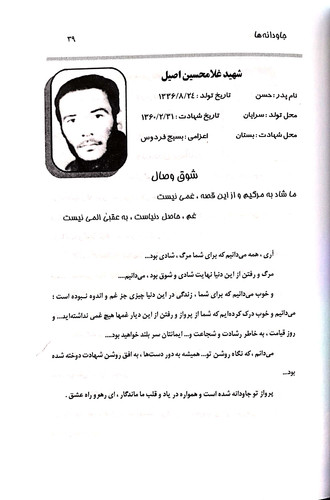 جاودانه‌ها
۳۹
شهید غلامحسین اصیل
نام پدر : حسن
تاریخ تولد : ۱۳۳۶/۸/۲٤
محل تولد : سرایان
تاریخ شهادت : ۱۳۶۰/۲/۳۱
محل شهادت : بستان
اعزامی : بسیج فردوس
شوق وصال
ما شاد به مرگیم و از این قصه ، غمی نیست
غم ، حاصل دنیاست ، به عقبیٰ المی نیست
آری ، همه می‌دانیم که برای شما مرگ ، شادی بود...
مرگ و رفتن از این دنیا نهایت شادی و شوق بود ، می‌دانیم....
و خوب می‌دانیم که برای شما ، زندگی در این دنیا چیزی جز غم و اندوه نبوده است ؛
می‌دانیم و خوب درک کرده‌ایم که شما از پرواز و رفتن از این دیار غمها هیچ غمی نداشته‌اید... و
روز قیامت ، به خاطر رشادت و شجاعت و... ایمانتان سر بلند خواهید بود....
می‌دانم، که نگاه روشن تو... همیشه به دور دست‌ها ، به افق روشن شهادت دوخته شده
بود...
پرواز تو جاودانه شده است و همواره در یاد و قلب ما ماندگار ، ای رهرو راه عشق .